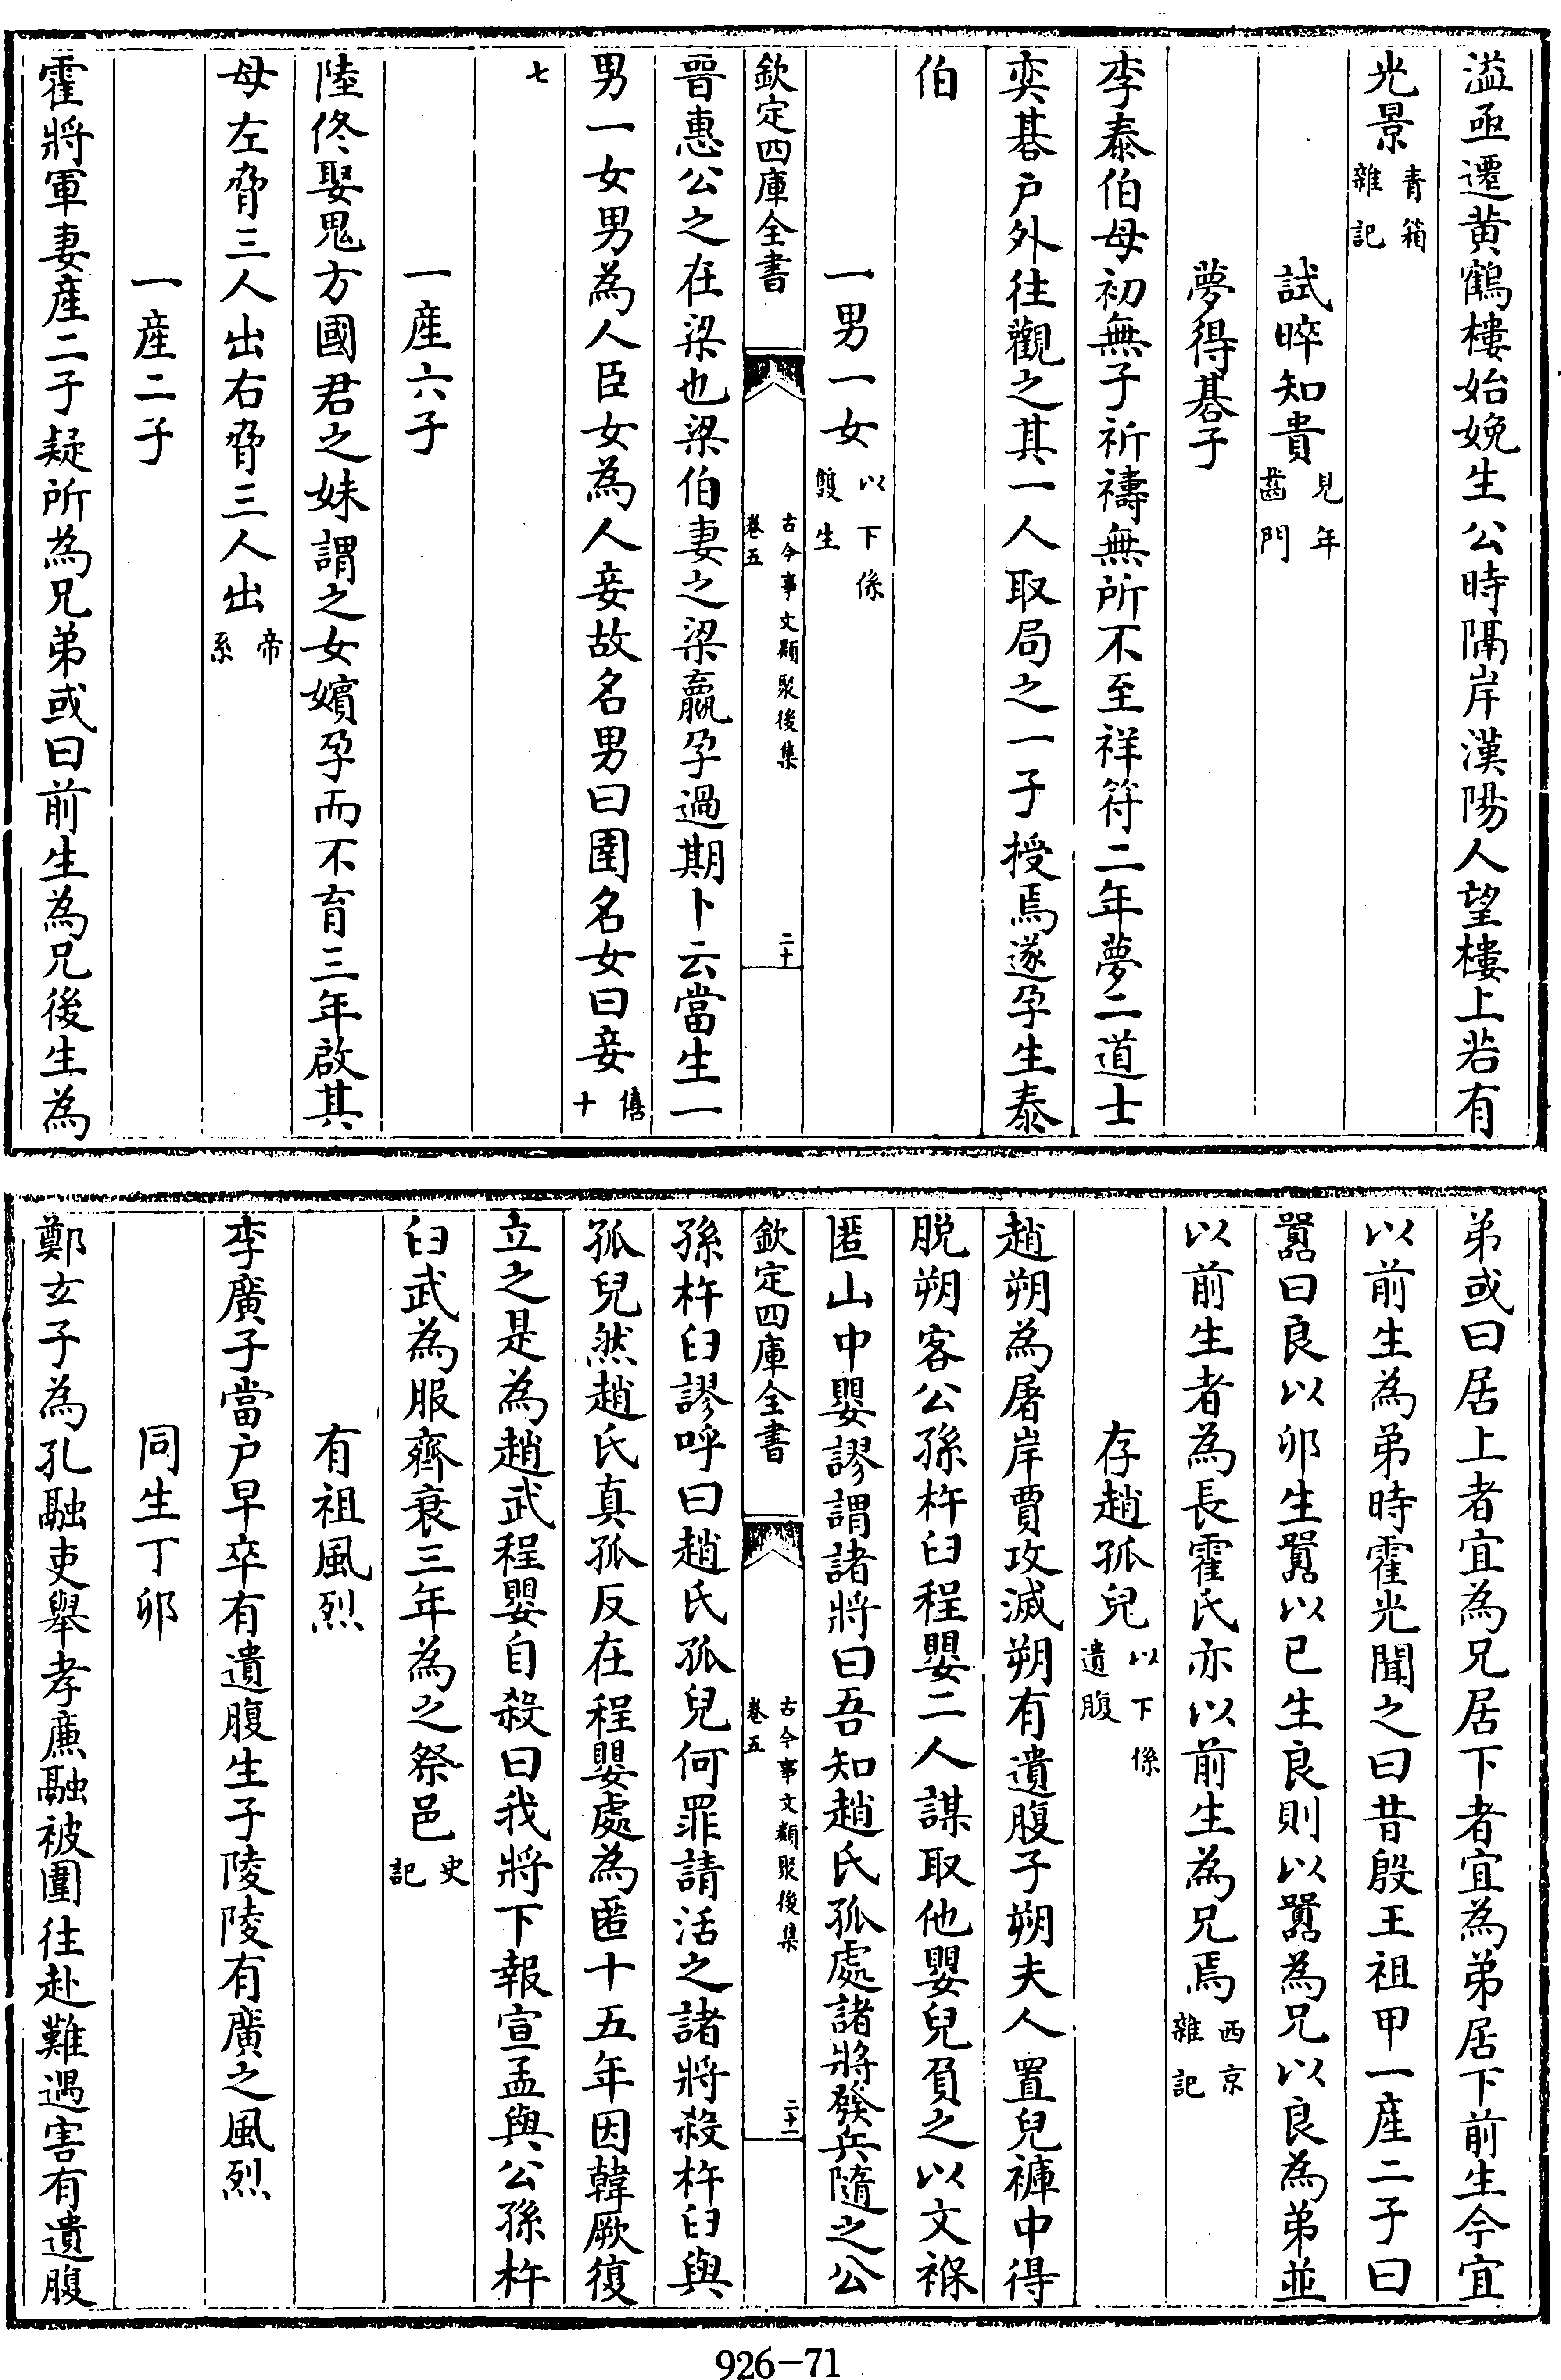 溢亟遷黄鶴樓始娩生公時隔岸漢陽人望樓上若有
光景青箱雜記
試晬知貴見年齒門
夢得碁子
李泰伯母初無子祈禱無所不至祥符二年夢二道士
奕碁户外往觀之其一人取局之一子授焉遂孕生泰
伯
一男一女以下係雙生
欽定四庫全書
古今事文類聚後集
卷五
二十
晉惠公之在梁也梁伯妻之梁嬴孕過期卜云當生一
男一女男為人臣女為人妾故名男曰圉名女曰妾僖十
七
一産六子
陸佟娶鬼方國君之妹謂之女嬪孕而不育三年啟其
母左脅三人出右脅三人出帝系
一産二子
霍將軍妻産二子疑所為兄弟或曰前生為兄後生為
弟或曰居上者宜為兄居下者宜為弟居下前生今宜
以前生為弟時霍光聞之曰昔殷王祖甲一産二子曰
嚚曰良以卯生嚚以巳生良則以嚚為兄以良為弟並
以前生者為長霍氏亦以前生為兄焉西京雜記
存趙孤兒以下係遺腹
趙朔為屠岸賈攻滅朔有遺腹子朔夫人置兒褲中得
脱朔客公孫杵臼程嬰二人謀取他嬰兒負之以文褓
匿山中嬰謬謂諸將曰吾知趙氏孤處諸將發兵隨之公
欽定四庫全書
古今事文類聚後集
卷五
二十一
孫杵臼謬呼曰趙氏孤兒何罪請活之諸將殺杵臼與
孤兒然趙氏真孤反在程嬰處為匿十五年因韓厥復
立之是為趙武程嬰自殺曰我將下報宣孟與公孫杵
臼武為服齊衰三年為之祭邑史記
有祖風烈
李廣子當户早卒有遺腹生子陵陵有廣之風烈
同生丁卯
鄭玄子為孔融吏舉孝廉融被圍往赴難遇害有遺腹
926-71